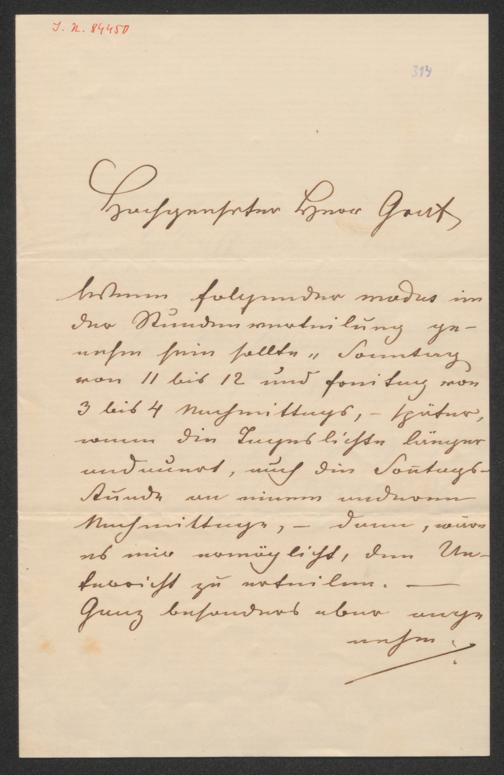 J. N. 84450
314
Hochgeehrter Herr Graf
Wenn folgender modus in
der Stundenverteilung ge-
nehm sein sollte „ Sonntag
von 11 bis 12 und freitag von
3 bis 4 Nachmittags, – später,
wenn die Tageslichte länger
andauert, auch die Sontags-
stunde an einem anderen
Nachmittage, – dann, wäre
es mir ermöglicht, den Un-
terricht zu erteilen. —
Ganz besonders aber ange
nehm :